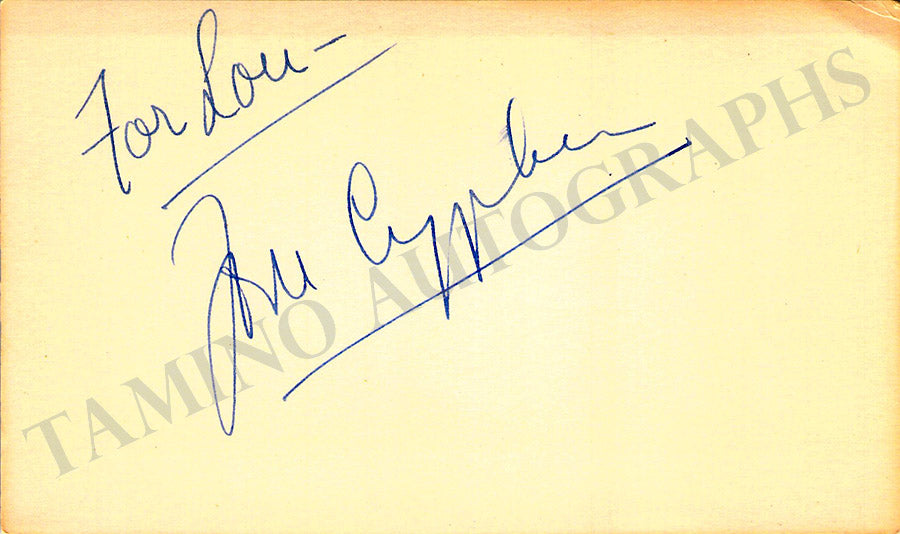 For Lou —
Jon Cypher
TAMINO AUTOGRAPHS